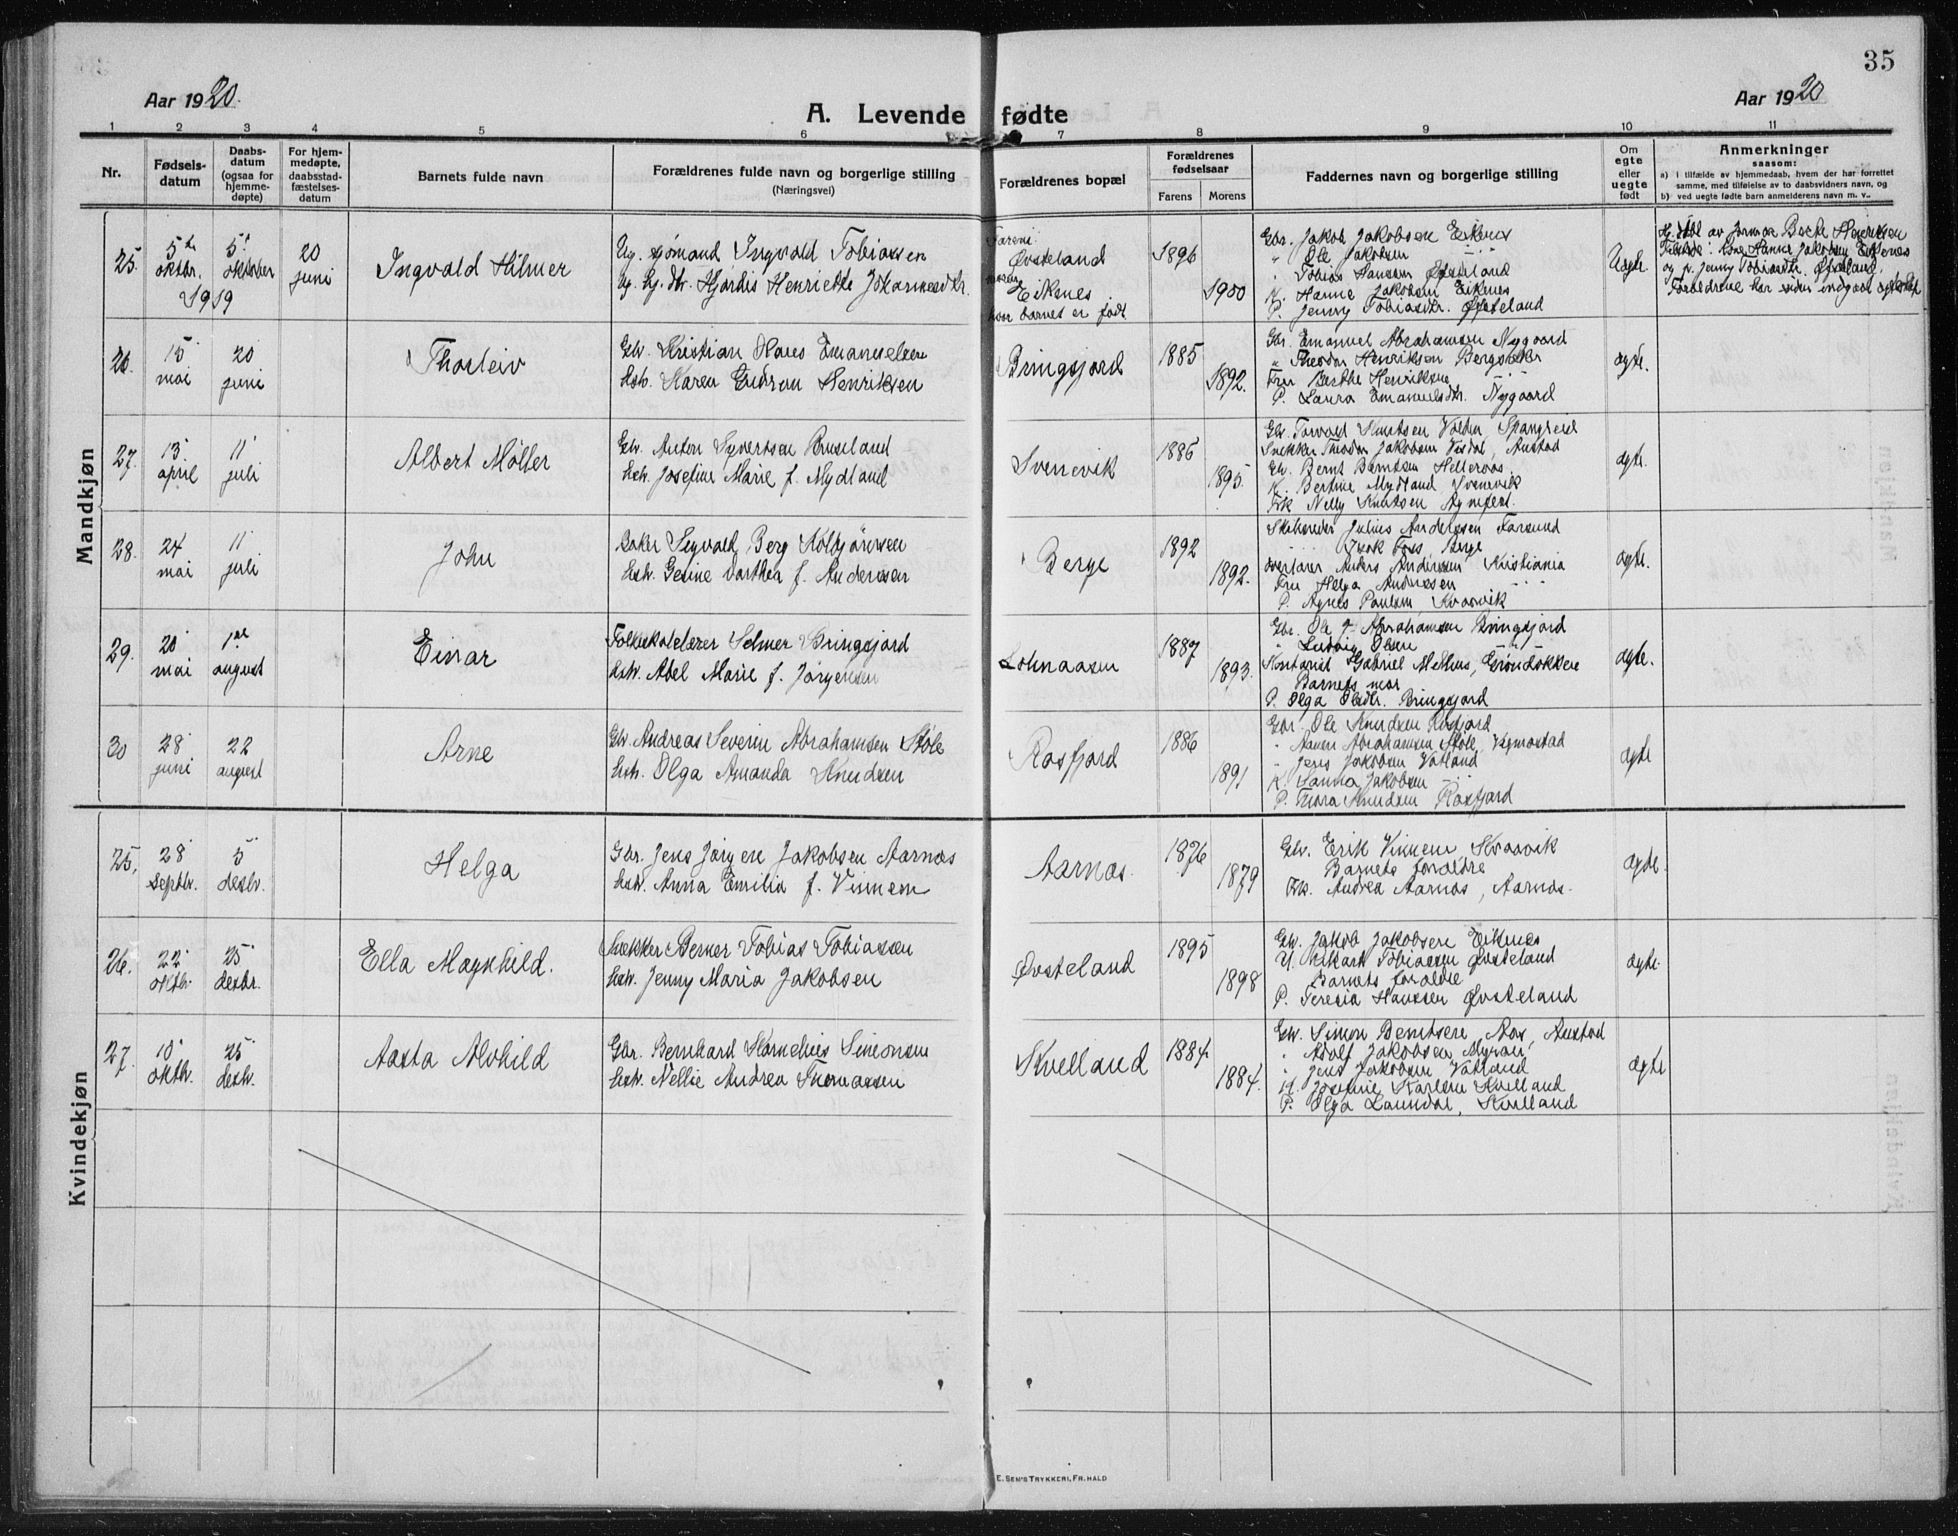 35
Aar 1920.
Aar 1920
A. Levende fødte
1 2 3 4 5 6 7 8 9 10 11
Nr.
Fødsels-
datum
Daabs-
datum
(ogsaa for
hjemme-
døpte)
For hjem-
medøpte,
daabsstad-
fæstelses-
datum
Barnets fulde navn
Forældrenes fulde navn og borgerlige stilling
(Næringsvei)
Forældrenes bopæl
Forældrenes
fødselsaar
Farens
Morens
Faddernes navn og borgerlige stilling
Om
egte
eller
uegte
født
Anmerkninger
saasom:
a) i tilfælde av hjemmedaab, hvem der har forrettet
samme, med tilføielse av to daabsvidners navn, og
b) ved uegte fødte barn anmelderens navn m. v.
Mandkjøn
25.
5te
oktbr.
1919
5'
oktober
20
juni
Ingvald Hilmer
Ug. sjømand Ingvald Tobiassen
Ug. Gj. dtr. Hjørdis Henriette Johannesdtr.
Farens:
Øvsteland
Eikenes
hvor barnet er født
1896
1900
Gbr. Jakob Jakobsen Eikenes
" Ole Jakobsen
" Tobias Hansen Øvsteland
K. Hanne Jakobsen Eikenes
P. Jenny Tobiasdtr. Øvsteland
Uegte
Hj. døbt av jormor Berte Henriksen
Hanne Jakobsen Eikenes
og p. Jenny Tobiasdtr. Øvsteland.
Foreldrene har siden indgaat egteskap
26.
15
mai
20
juni
Thorleiv
Gbr. Kristian Hans Emanuelsen
Hst. Karen Gudrun Henriksen
Bringsjord
1885
1892.
Gbr. Emanuel Abrahamsen Nygaard
" Theodor Henriksen
Fru Berthe Henriksen
P. Laura Emanuelsdtr. Nygaard
ægte.
27.
13
april
11
juli
Albert Møller
Gbr. Anton Syvertsen Bruseland
Hst. Josefine Marie f. Mydland
Svenevik
1886
1895.
Gbr. Torvald Knutsen Volden Spangreid
Snekker Theodor Jakobsen Austad
Gbr. Bernt Berntsen Hellernes
K. Bertine Mydland, Svenevik
Frk Nelly Knutsen
ægte.
28.
24
mai
11
juli
John
Baker Sigvald Berg Kolbjørnsen
Hst. Gesine Dorthea f. Andersen
Berge
1892
1892.
Skibsreder Julius Andersen Farsund
Foss, Berge
Anders Andersen Kristiania
Fru Helga Andersen " " "
P. Agnes Paulsen Kvavik
ægte.
29.
20
mai
1ste
august
Einar
Folkeskolelærer Selmer Bringsjord
Hst. Abel Marie f. Jørgensen
1887
1893.
Gbr. Ole J. Abrahamsen Bringsjord
" Ludvig Olsen
Kontorist Gabriel Melhus, Grøndokken
Barnets mor
P. Olga Olsdtr. Bringsjord
ægte.
30
28
juni
22
august
Arne
Gbr. Andreas Severin Abrahamsen Støle
Hst. Olga Amanda Knudsen
Rosfjord
1886
1891
Gbr. Ole Knudsen Rosfjord
" Abrahamsen Støle, Vigmostad
" Jens Jakobsen Vatland
K. Sanna Jakobsen " "
P. Thora Knudsen Rosfjord
ægte
Kvindekjøn
25.
28
septbr.
5
desbr.
Helga
Gbr. Jens Jørgen Jakobsen Aarnes
Hst. Anna Emilia f. Vinnem
Aarnes.
1876
1879
Gbr. Erik Vinnem Kvavik
Barnets foreldre
Frk. Andrea Aarnes, Aarnes.
ægte.
26.
22
oktbr.
25
desbr.
Ella Magnhild.
Snekker Berner Tobias Tobiassen
Hst. Jenny Maria Jakobsen
Øvsteland
1895
1898
Gbr. Jakob Jakobsen Eikenes
U. Tobiassen Øvsteland
Barnets foreldre
P. Teresia Hanssen Øvsteland
ægte.
27.
10
oktbr.
25
desbr.
Aasta Alvhild
Gbr. Bernhard Kornelius Simonsen
Hst. Nellie Andrea Thomassen
Kvelland
1884
1884.
Gbr. Simon Berntsen, Aas, Austad
" Adolf Jakobsen Myran
" Jens Jakobsen Vatland
K. Josefine Karlsen Kvelland
P. Olga Laundal, Kvelland
ægte
E. SEM'S TRYKKERI, FR. HALD